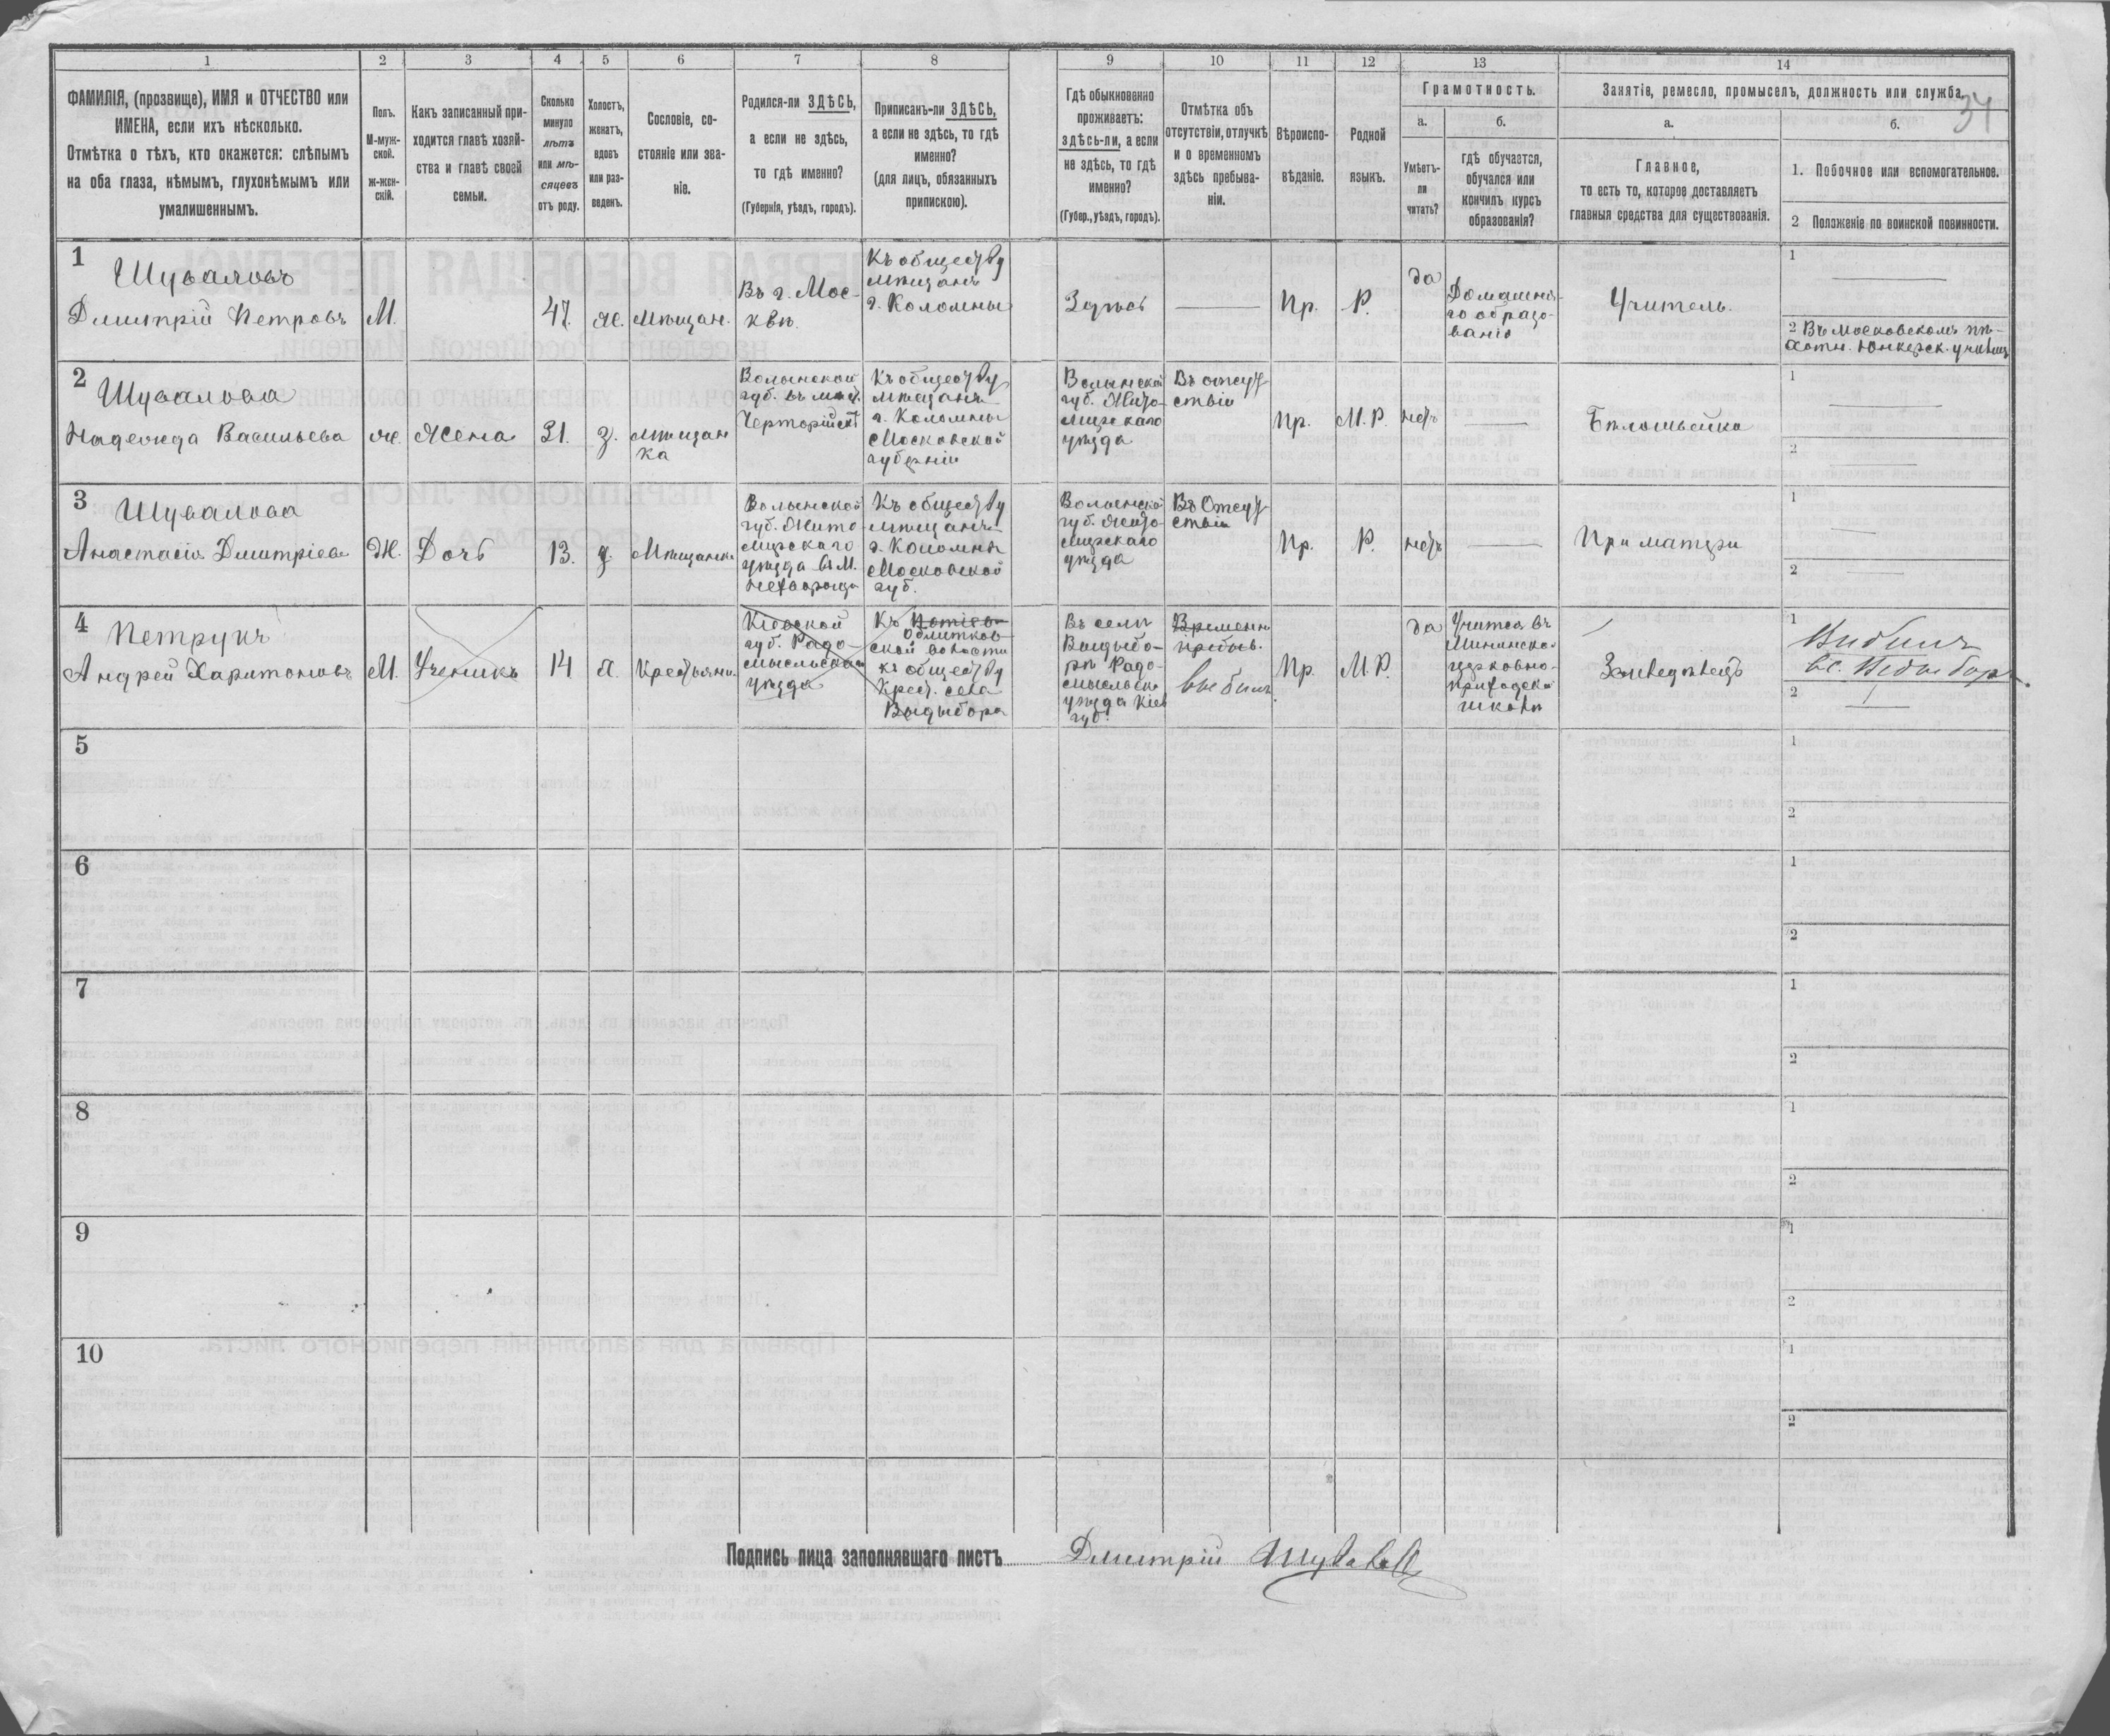 34
1
2
3
4
5
6
7
8
9
10
11
12
13
14
ФАМИЛІЯ, (прозвище), ИМЯ и ОТЧЕСТВО или
ИМЕНА, если ихъ нѣсколько.
Отмѣтка о тѣхъ, кто окажется: слѣпымъ
на оба глаза, нѣмымъ, глухонѣмымъ или
умалишеннымъ.
Полъ.
М-муж-
ской.
Ж-жен-
скій.
Какъ записанный при-
ходится главѣ хозяй-
ства и главѣ своей
семьи.
Сколько
минуло
лѣтъ
или мѣ-
сяцевъ
отъ роду.
Холостъ,
женатъ,
вдовъ
или раз-
веденъ.
Сословіе, со-
стояніе или зва-
ніе.
Родился-ли ЗДѢСЬ,
а если не здѣсь,
то гдѣ именно?
(Губернія, уѣздъ, городъ).
Приписанъ-ли ЗДѢСЬ,
а если не здѣсь, то гдѣ
именно?
(для лицъ, обязанныхъ
припискою).
Гдѣ обыкновенно
проживаетъ:
здѣсь-ли, а если
не здѣсь, то гдѣ
именно?
(Губер., уѣздъ, городъ).
Отмѣтка объ
отсутствіи, отлучкѣ
и о временномъ
здѣсь пребыва-
ніи.
Вѣроиспо-
вѣданіе.
Родной
языкъ.
Грамотность.
а.
Умѣетъ-
ли
читать?
б.
гдѣ обучается,
обучался или
кончилъ курсъ
образованія?
Занятіе, ремесло, промыселъ, должность или служба.
а.
Главное,
то есть то, которое доставляетъ
главныя средства для существованія.
б.
1. Побочное или вспомогательное.
2 Положеніе по воинской повинности.
1
Шуваловъ
Дмитрій Петровъ
М.
47.
ж.
Мѣщан.
Въ г. Мос-
квѣ.
Къ обществу
мѣщанъ
г. Коломны
Здѣсь
Пр.
Р.
да
Домашня-
го образо-
ванія
Учитель.
1
2 Въ Московскомъ пѣ-
хотн. Юнкерск. училищ
2
Шувалова
Надежда Васильева
ж.
Жена
31.
з.
мѣщан
ка
Волынской
губ. въ мѣст.
Чарторійскъ
Къ обществу
мѣщанъ
г. Коломны
Московской
губерніи
Волынской
губ. Жито-
мирскаго
уѣзда
Въ отсут-
ствіи
Пр.
М. Р.
нетъ
Бѣлошвейка
1
2
3
Шувалова
Анастасія Дмитріева
Ж.
Дочь
13.
д.
Мѣщанка
Волынской
губ. Жито
мирскаго
уѣзда въ М.
Къ обществу
мѣщанъ
г. Коломны
Московской
губ.
Волынской
губ. Жито-
мирскаго
уѣзда
Въ Отсут
ствіи
Пр.
Р.
нетъ
При матери
1
2
4
Петрукъ
Андрей Харитоновъ
М.
Ученикъ
14
х.
Крестьянинъ
Кіевской
губ. Радо-
мысльскаго
уѣзда
Къ
ской волости
къ обществу
Крест. села
Выдыбора
Въ селѣ
Выдыбо-
рѣ Радо-
мысльска
уѣзда Кіев
губ.
Временно
пребыв.
выбылъ
Пр.
М. Р.
да
Учится въ
Мининско
церковно-
приходско
школѣ
Земледѣлецъ
1
Выбылъ
в с. Выдыборъ.
2
5
1
2
6
1
2
7
1
2
8
1
2
9
1
2
10
1
2
Подпись лица заполнявшаго листъ Дмитрій Шуваловъ